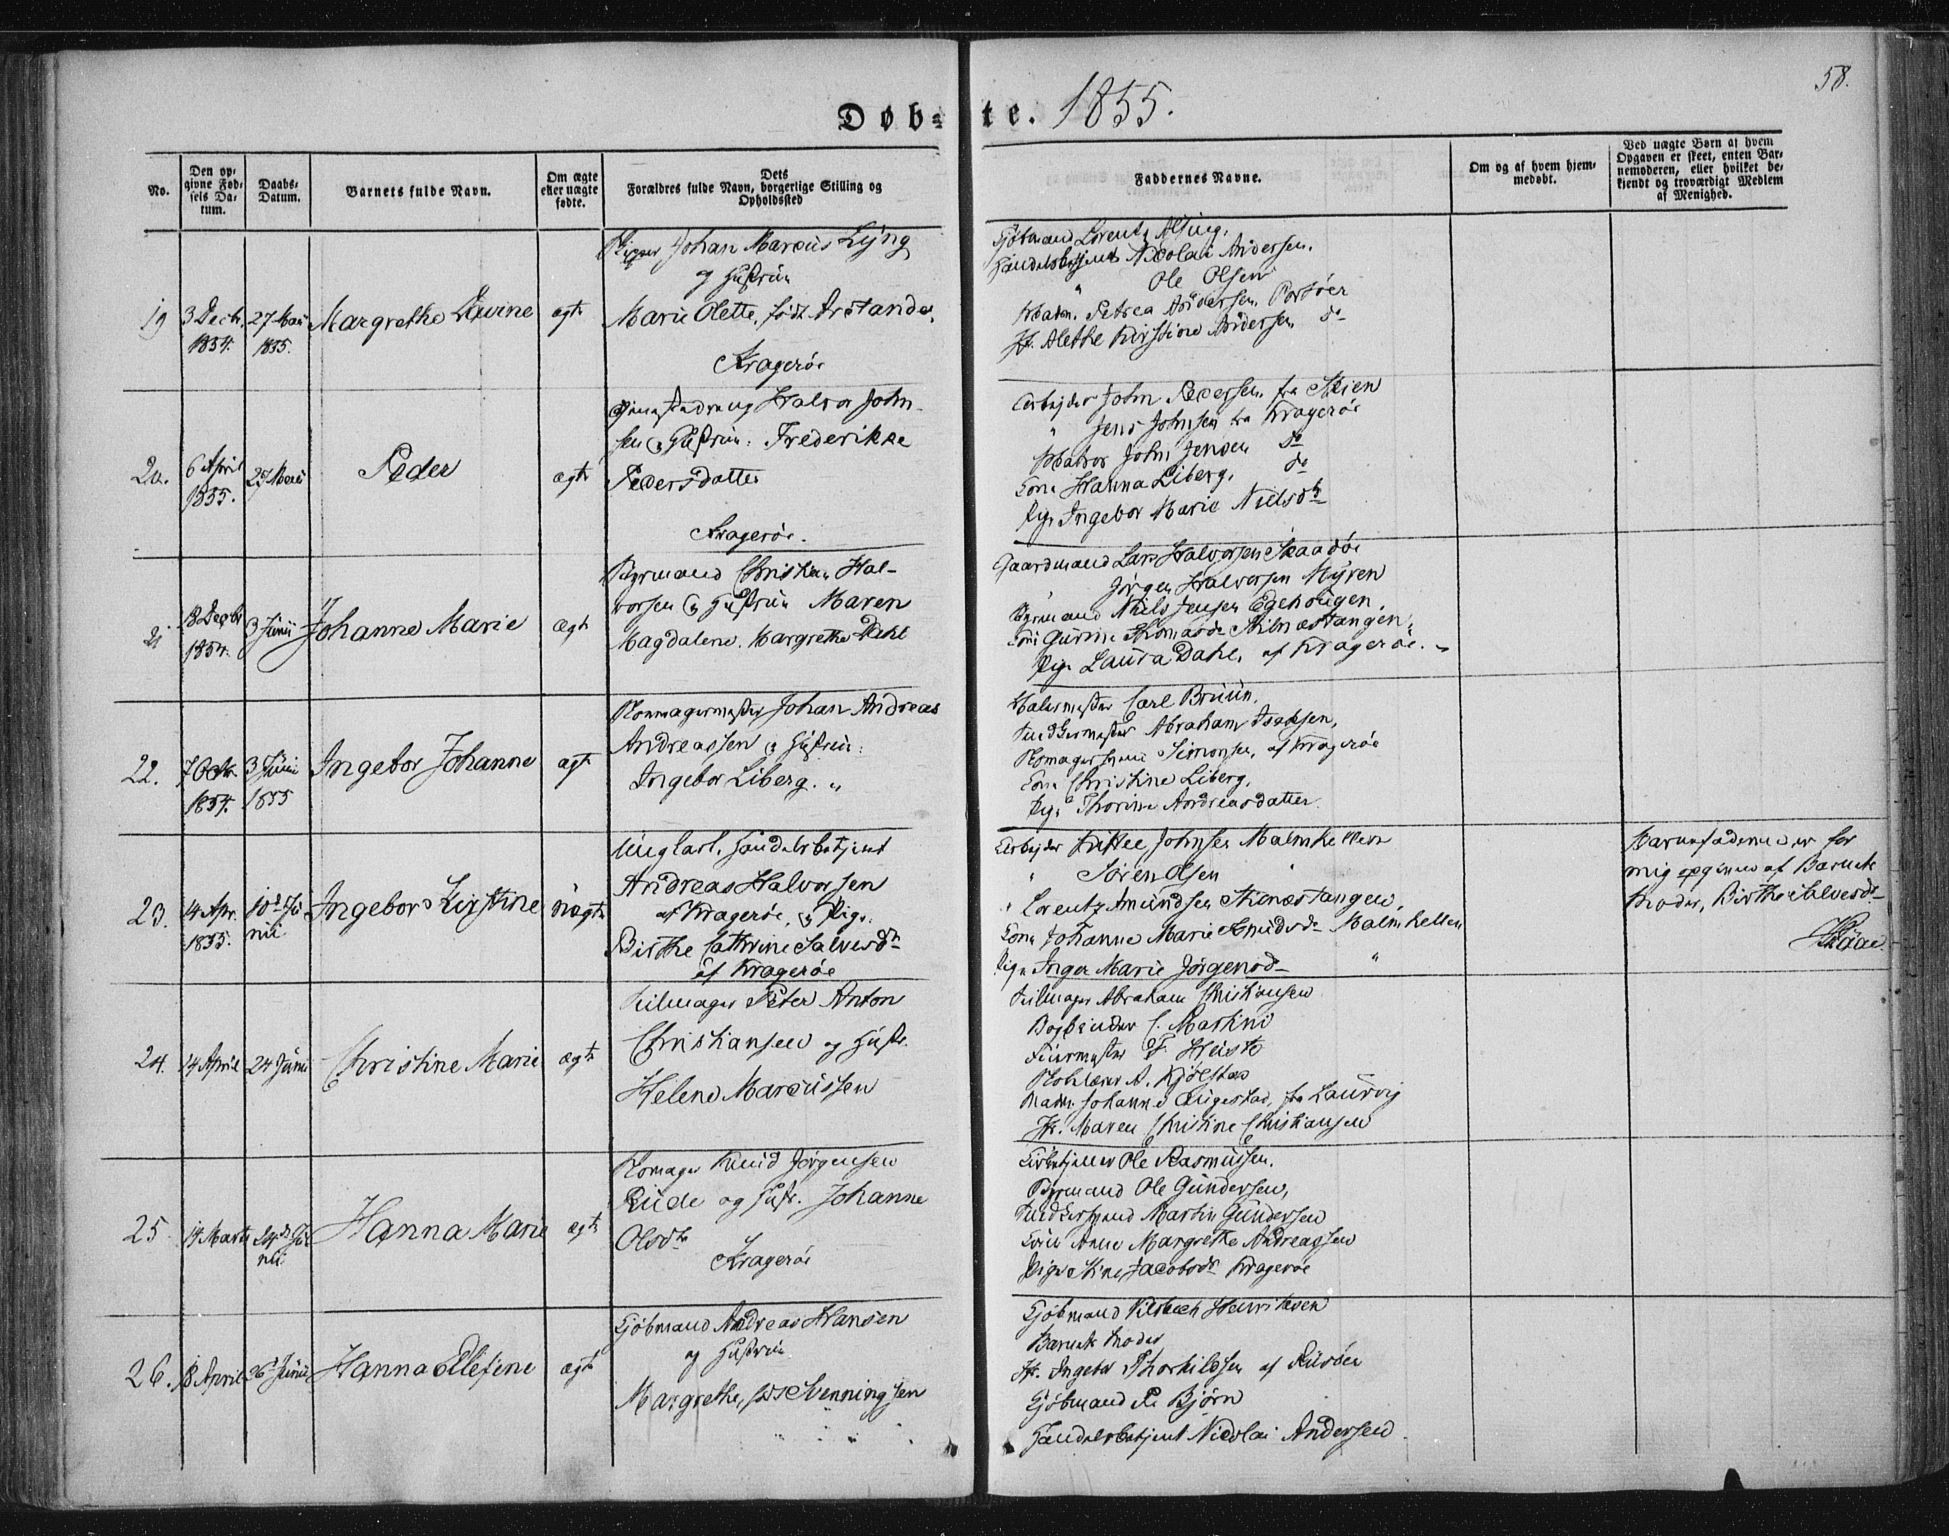 58.
Døb- te. 1855.
No.
Den op-
givne Fød-
sels Da-
tum.
Daabs-
Datum.
Barnets fulde Navn.
Om ægte
eller uægte
fødte.
Dets
Forældres fulde Navn, borgerlige Stilling og
Opholdssted
Faddernes Navne.
Om og af hvem hjem-
medøbt.
Ved uægte Børn af hvem
Opgaven er skeet, enten Bar-
nemoderen, eller hvilket be-
kjendt og troværdigt Medlem
af Menighed.
19
3 Decbr.
1854.
27 Mai
1855.
Margrethe
ægte
Skipper Johan Marcus Lyng
og Hustrue
Marie Olette, født
Kragerøe
Kjøbmand Lorentz
Handelsbetjent Nicolai Andersen.
" Ole Olsen
Madm. Petrea Andersen, Portøer
Jf. Alethe Kirstine Andersen do
20.
6 April
1855.
29 Mai
Peder
ægte
Halvor John-
sen og Hustrue. Frederikke
Pedersdatter
Kragerøe.
Arbejder John Pedersen fra Skien
" Jens Johnsen fra Kragerøe
Matros John Jensen do
Kone Hanna Liberg, do
Pige Ingebor Marie Nielsdtr
21
18 Decbr
1854.
3 Junii
Johanne Marie
ægte
Styrmand Christian Hal-
vorsen og Hustrue Maren
Magdalene Margrethe Dahl
Gaardmand Lars Halvorsen Skaadøe
Jørgen Halvorsen Myren
Styrmand Niels Jensen Egehougen,
Kone Gurine Thomasdr
Pige Laura Dahl, af Kragerøe.
22.
7 Octbr.
1854.
3 Junii
1855
Ingebor Johanne
ægte
Skomagermester Johan Andreas
Andreassen og Hustrue:
Ingebor Liberg. "
Malermester Carl Bruun,
Abraham Isaksen,
Skomagersvend Simonsen, af Kragerøe
Kone Christine Liberg,
Pige Thorine Andreasdatter.
23.
14 Apr.
1855.
10de Ju-
nii
Ingebor Kirstine
uægte
Ungkarl, Handelsbetjent
Andreas Halvorsen
af Kragerøe, og Pige:
Birthe Cathrine Salvesdtr
af Kragerøe
Arbejder Johnsen Malmhellen
" Søren Olsen "
" Lorentz Amundsen
Kone Johanne Marie Knudsdr Malmhellen
Pige Inger Marie Jørgensd "
Barnefaderen er for
mig opgiven af Barnets
Moder, Birthe Salvesdr
24.
14 April
24 Junii
Christine Marie
ægte
Peter Anton
Christiansen og Hustr.
Helene Marcussen
Abraham Christiansen
Bogbinder C. Martini
F.
A.
Madm. Johanne Augestad, fra Laurvig
Jf. Maren Christine Christiansen
25
14 Marts
24de Ju-
nii
Hanna Marie
ægte
Skomager Knud Jørgensen
Rude og Hustr. Johanne
Olsdtr
Kragerøe
Ole Rasmussen.
Styrmand Ole Gundersen,
Martin Gundersen
Kone Anne Margrethe Andreassen
Pige Stine Jacobsdr Kragerøe
26.
18 April
26 Junii
Hanna Ellefine
ægte
Kjøbmand Andreas Hansen
og Hustrue
Margrethe, født Svenningsen
Kjøbmand Henriksen
Barnets Moder
Jf. Ingebor Thorkildsen af Riisøer
Kjøbmand P. Bjørn
Handelsbetjent Nicolai Andersen.